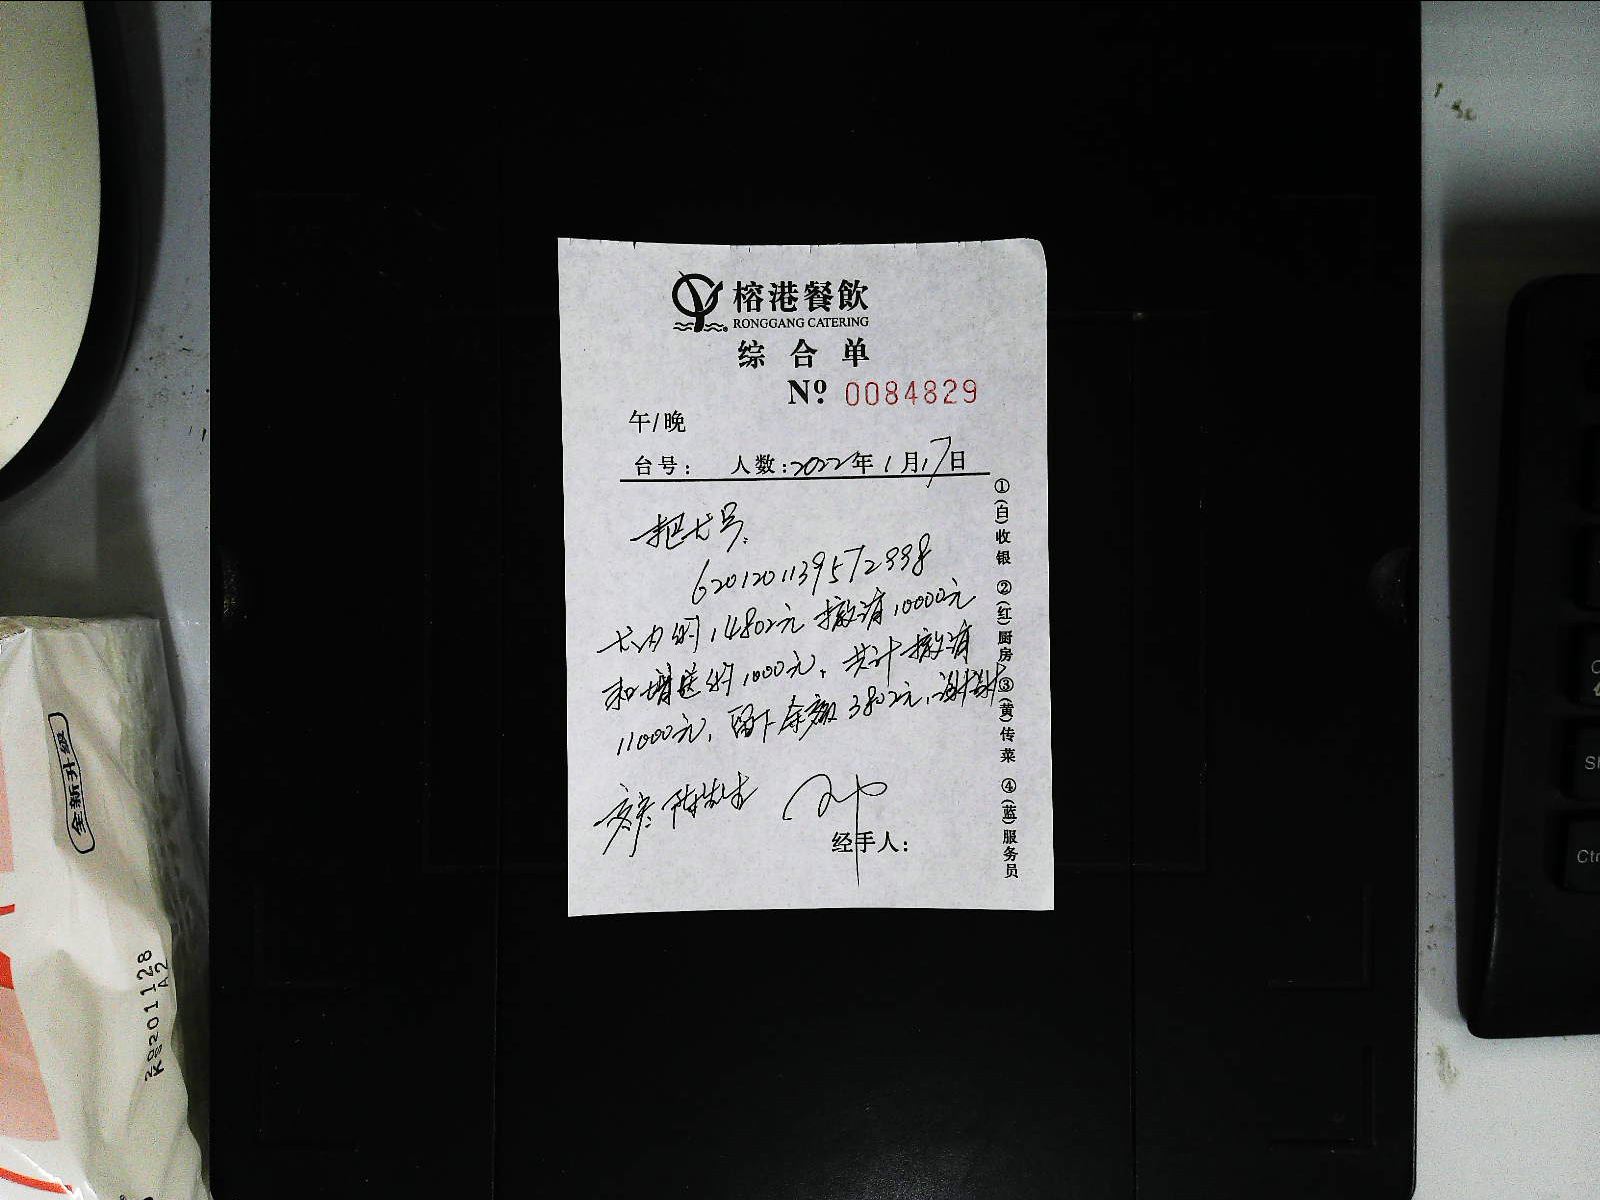 榕港餐飲
RONGGANG CATERING
综合单
Nº 0084829
午/晚
台号: 人数:2022年1月17日
把卡号:
6201201139572338
卡内的14802元撤消10000元
和增送的1000元,共计撤消
11000元,留下余额3802元,谢谢
陈先生
经手人:
①(白)收银 ②(红)厨房 ③(黄)传菜 ④(蓝)服务员
全新升级
20201128
A2
Ctrl